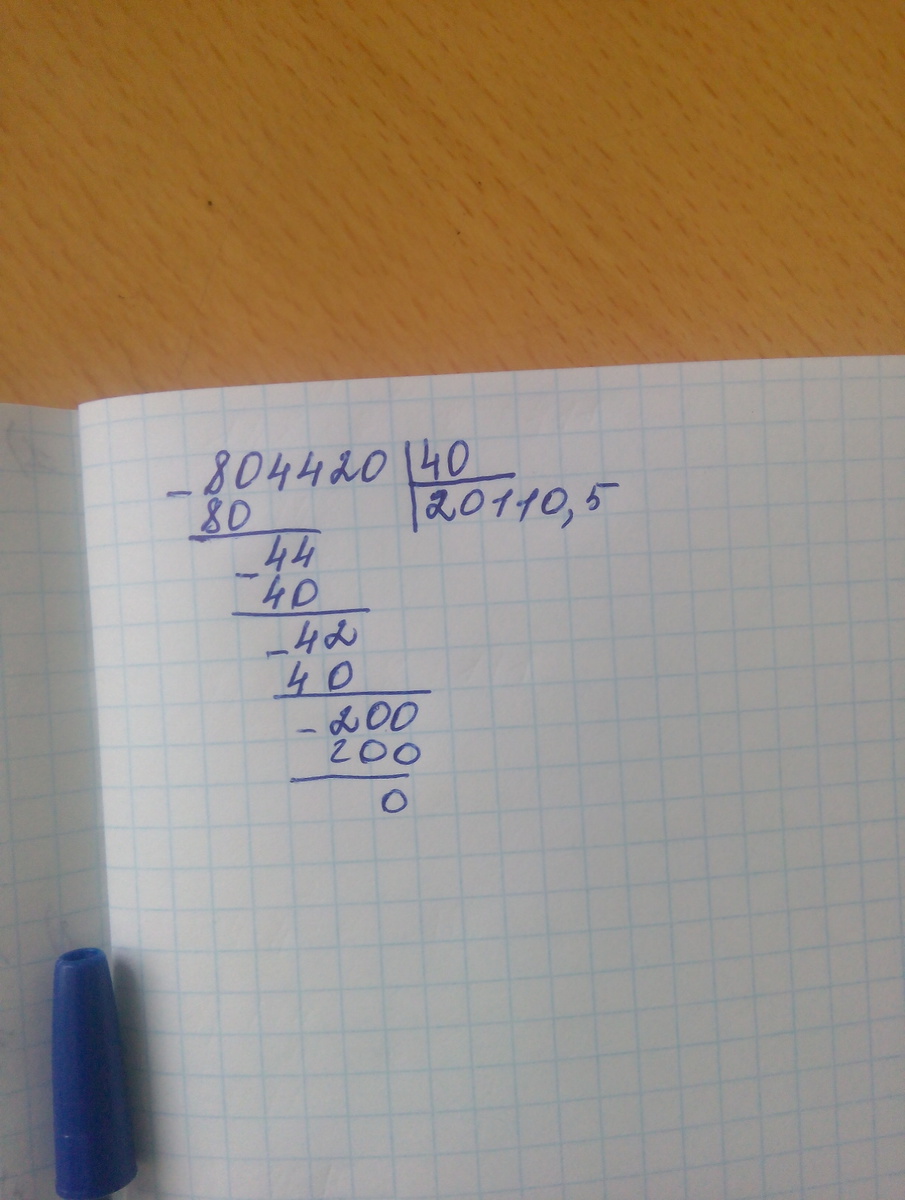 - 804420 | 40
80 | 20110,5
- 44
40
- 42
40
- 200
200
0